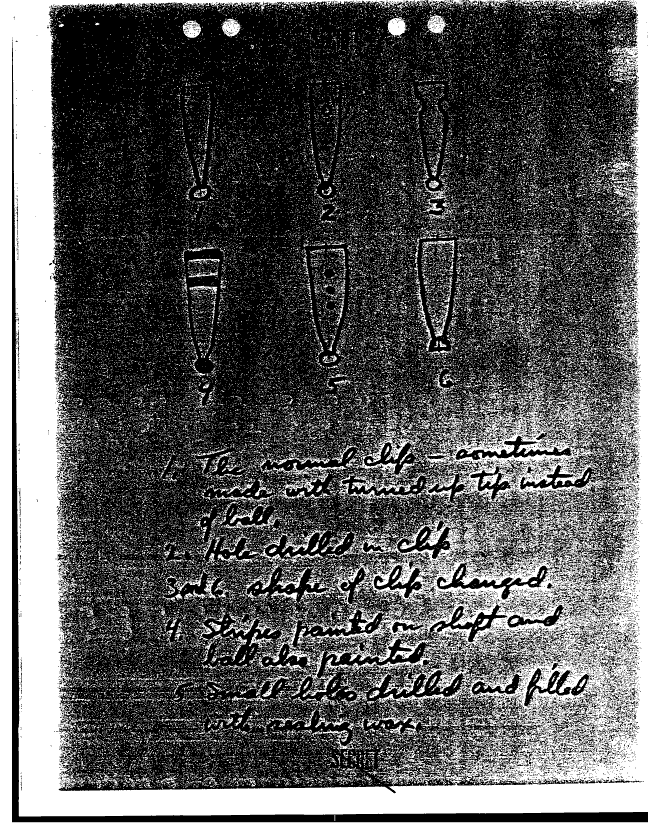 1 2 3
4 5 6
1. The normal clip — sometimes
made with turned up tip instead
of ball.
2. Hole drilled in clip
3 and 6. shape of clip changed.
4. Stripes painted on shaft and
ball also painted.
5 Small holes drilled and filled
with sealing wax.
SECRET